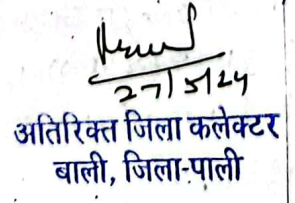 27/5/24
अतिरिक्त जिला कलेक्टर
बाली, जिला-पाली